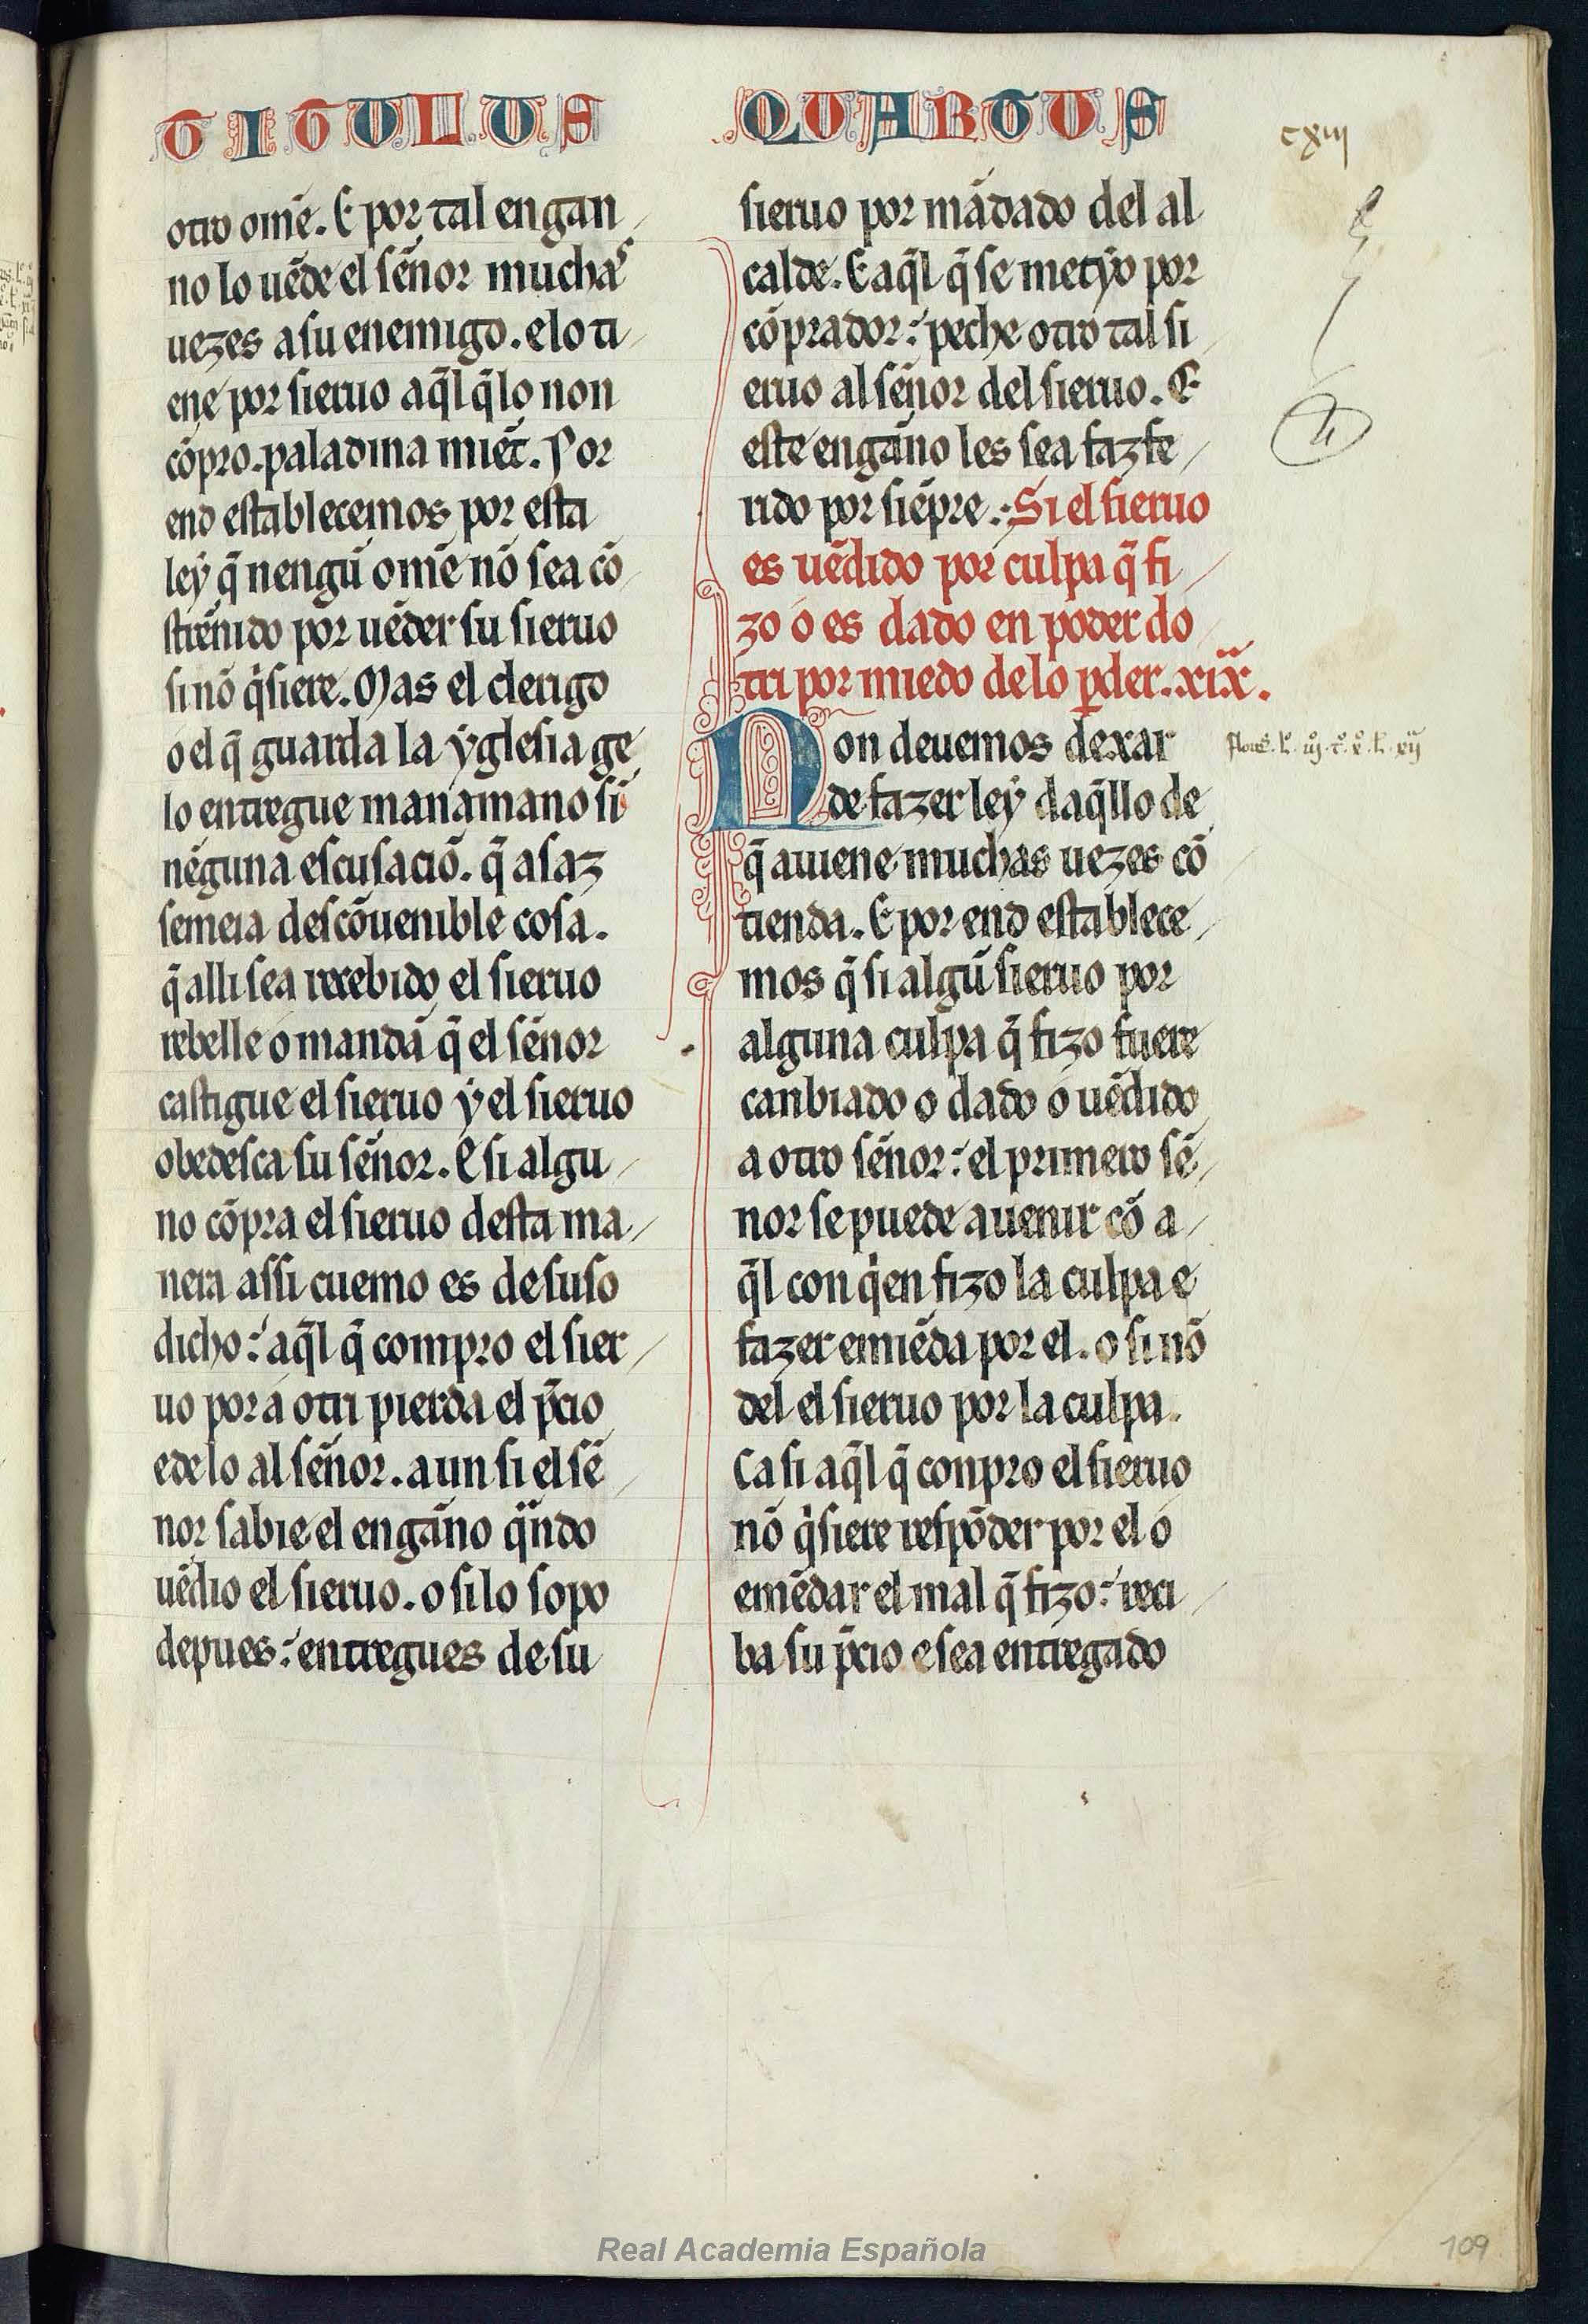 TITULUS QUARTUS
cxiij
otro omẽ. E por tal engan
no lo uẽde el sẽnor muchas
uezes a su enemigo. e lo ti
ene por sieruo aq̃l q̃ lo non
cõpro. paladina miẽt. Por
end establecemos por esta
ley q̃ nengũ omẽ nõ sea cõ
strẽnido por uẽder su sieruo
si nõ q̇siere. Mas el clerigo
o el q̃ guarda la yglesia ge
lo entregue manamano sĩ
nẽguna escusaciõ. q̃ asaz
semeia descõuenible cosa.
q̃ alli sea recebido el sieruo
rebelle o mandã q̃ el sẽnor
castigue el sieruo y el sieruo
obedesca su sẽnor. E si algu
no cõpra el sieruo desta ma
nera assi cuemo es de suso
dicho: aq̃l q̃ compro el sier
uo pora otri pierda el p̃cio
e delo al sẽnor. aun si el sẽ
nor sabie el engãno q̃ndo
uẽdio el sieruo. o si lo sopo
depues: entregues de su
sieruo por mãdado del al
calde. E aq̃l q̃ se metyo por
cõprador: peche otro tal si
eruo al sẽnor del sieruo. E
este engãno les sea fazfe
rido por siẽpre.: Si el sieruo
es uẽdido por culpa q̃ fi
zo o es dado en poder do
tri por miedo de lo p̱der. xix̃.
Non deuemos dexar
de fazer ley daq̃llo de
q̃ auiene muchas uezes cõ
tienda. E por end establece
mos q̃ si algũ sieruo por
alguna culpa q̃ fizo fuere
canbiado o dado o uẽdido
a otro sẽnor: el primero sẽ
nor se puede auenir cõ a
q̃l con q̇en fizo la culpa e
fazer emiẽda por el. o si nõ
del el sieruo por la culpa.
Ca si aq̃l q̃ conpro el sieruo
nõ q̇siere respõder por el o
emẽdar el mal q̃ fizo: reci
ba su p̃cio e sea entregado
Real Academia Española
109